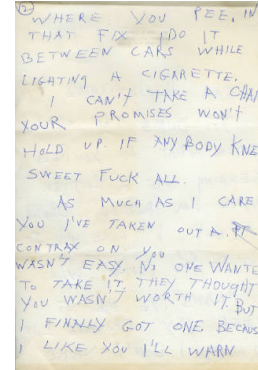 (2)
WHERE YOU PEE, IN
THAT FIX I DO IT
BETWEEN CARS WHILE
LIGHTING A CIGARETTE.
I CAN'T TAKE A CHA
YOUR PROMISES WON'T
HOLD UP. IF ANYBODY KNE
SWEET FUCK ALL.
AS MUCH AS I CARE
YOU I'VE TAKEN OUT A
CONTRAX ON YOU
WASN'T EASY. NO ONE WANTE
TO TAKE IT, THEY THOUGHT
YOU WASN'T WORTH IT. BUT
I FINALLY GOT ONE, BECAUS
I LIKE YOU I'LL WARN